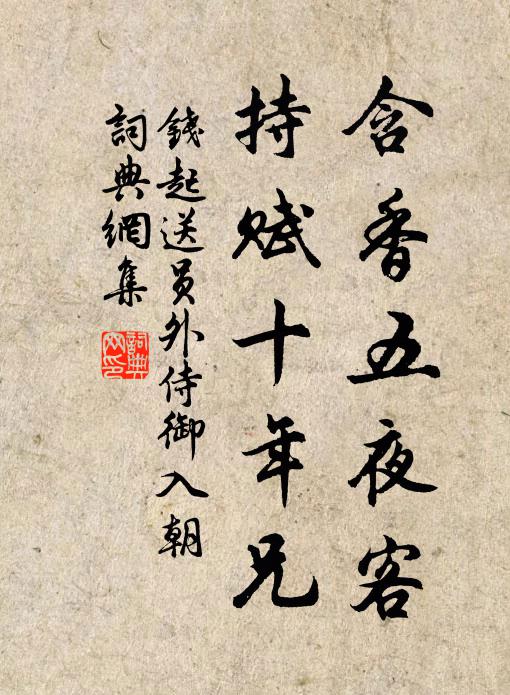 含香五夜客
持赋十年兄
錢起送员外侍御入朝
詞典網集
詞典网印